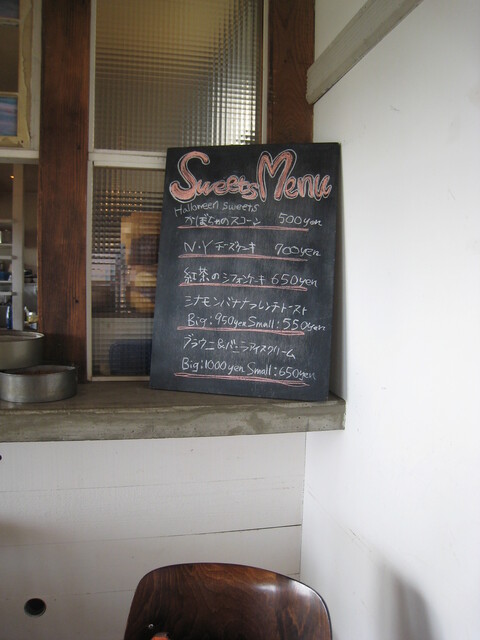 Sweets Menu
Halloween sweets
かぼちゃのスコーン 500yen
N・Yチーズケーキ 700yen
紅茶のシフォンケーキ 650yen
シナモンバナナフレンチトースト
Big:950yen Small:550yen
ブラウニー&バニラアイスクリーム
Big:1000yen Small:650yen